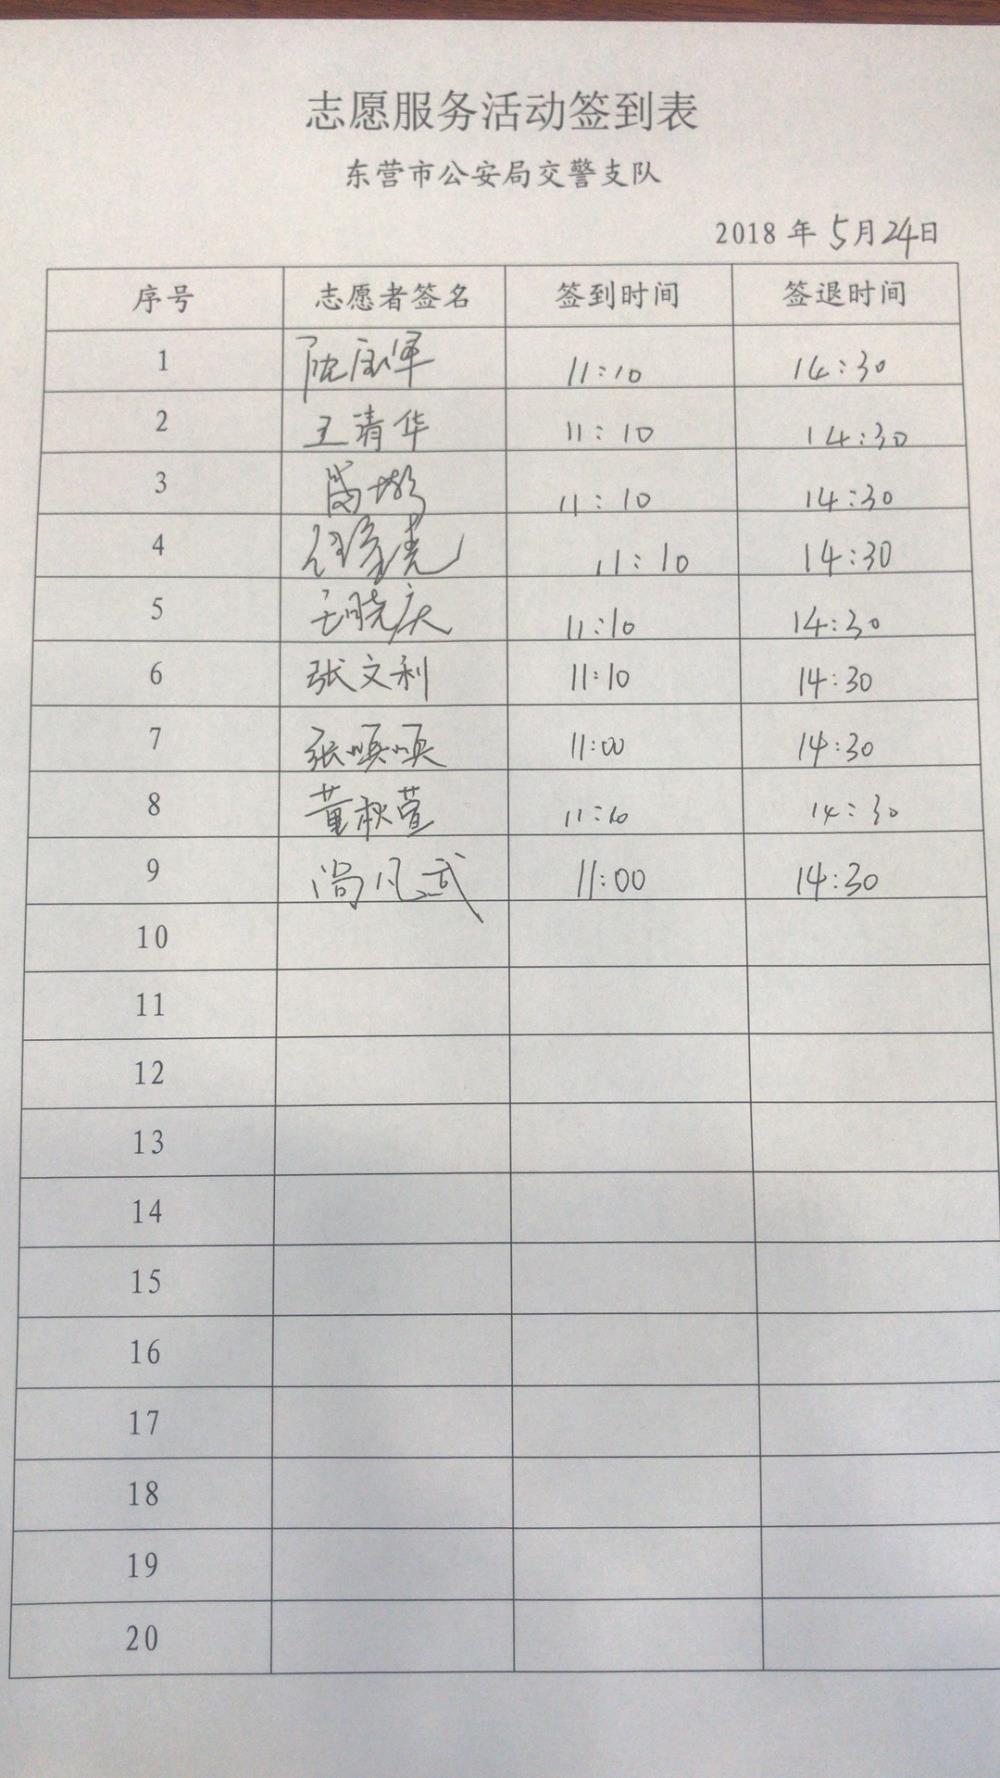 志愿服务活动签到表
东营市公安局交警支队
2018 年 5月24日
序号 志愿者签名 签到时间 签退时间
1 11:10 14:30
2 王清华 11:10 14:30
3 11:10 14:30
4 11:10 14:30
5 王晓庆 11:10 14:30
6 张文利 11:10 14:30
7 张 11:00 14:30
8 董秋萱 11:10 14:30
9 尚凡武 11:00 14:30
10
11
12
13
14
15
16
17
18
19
20